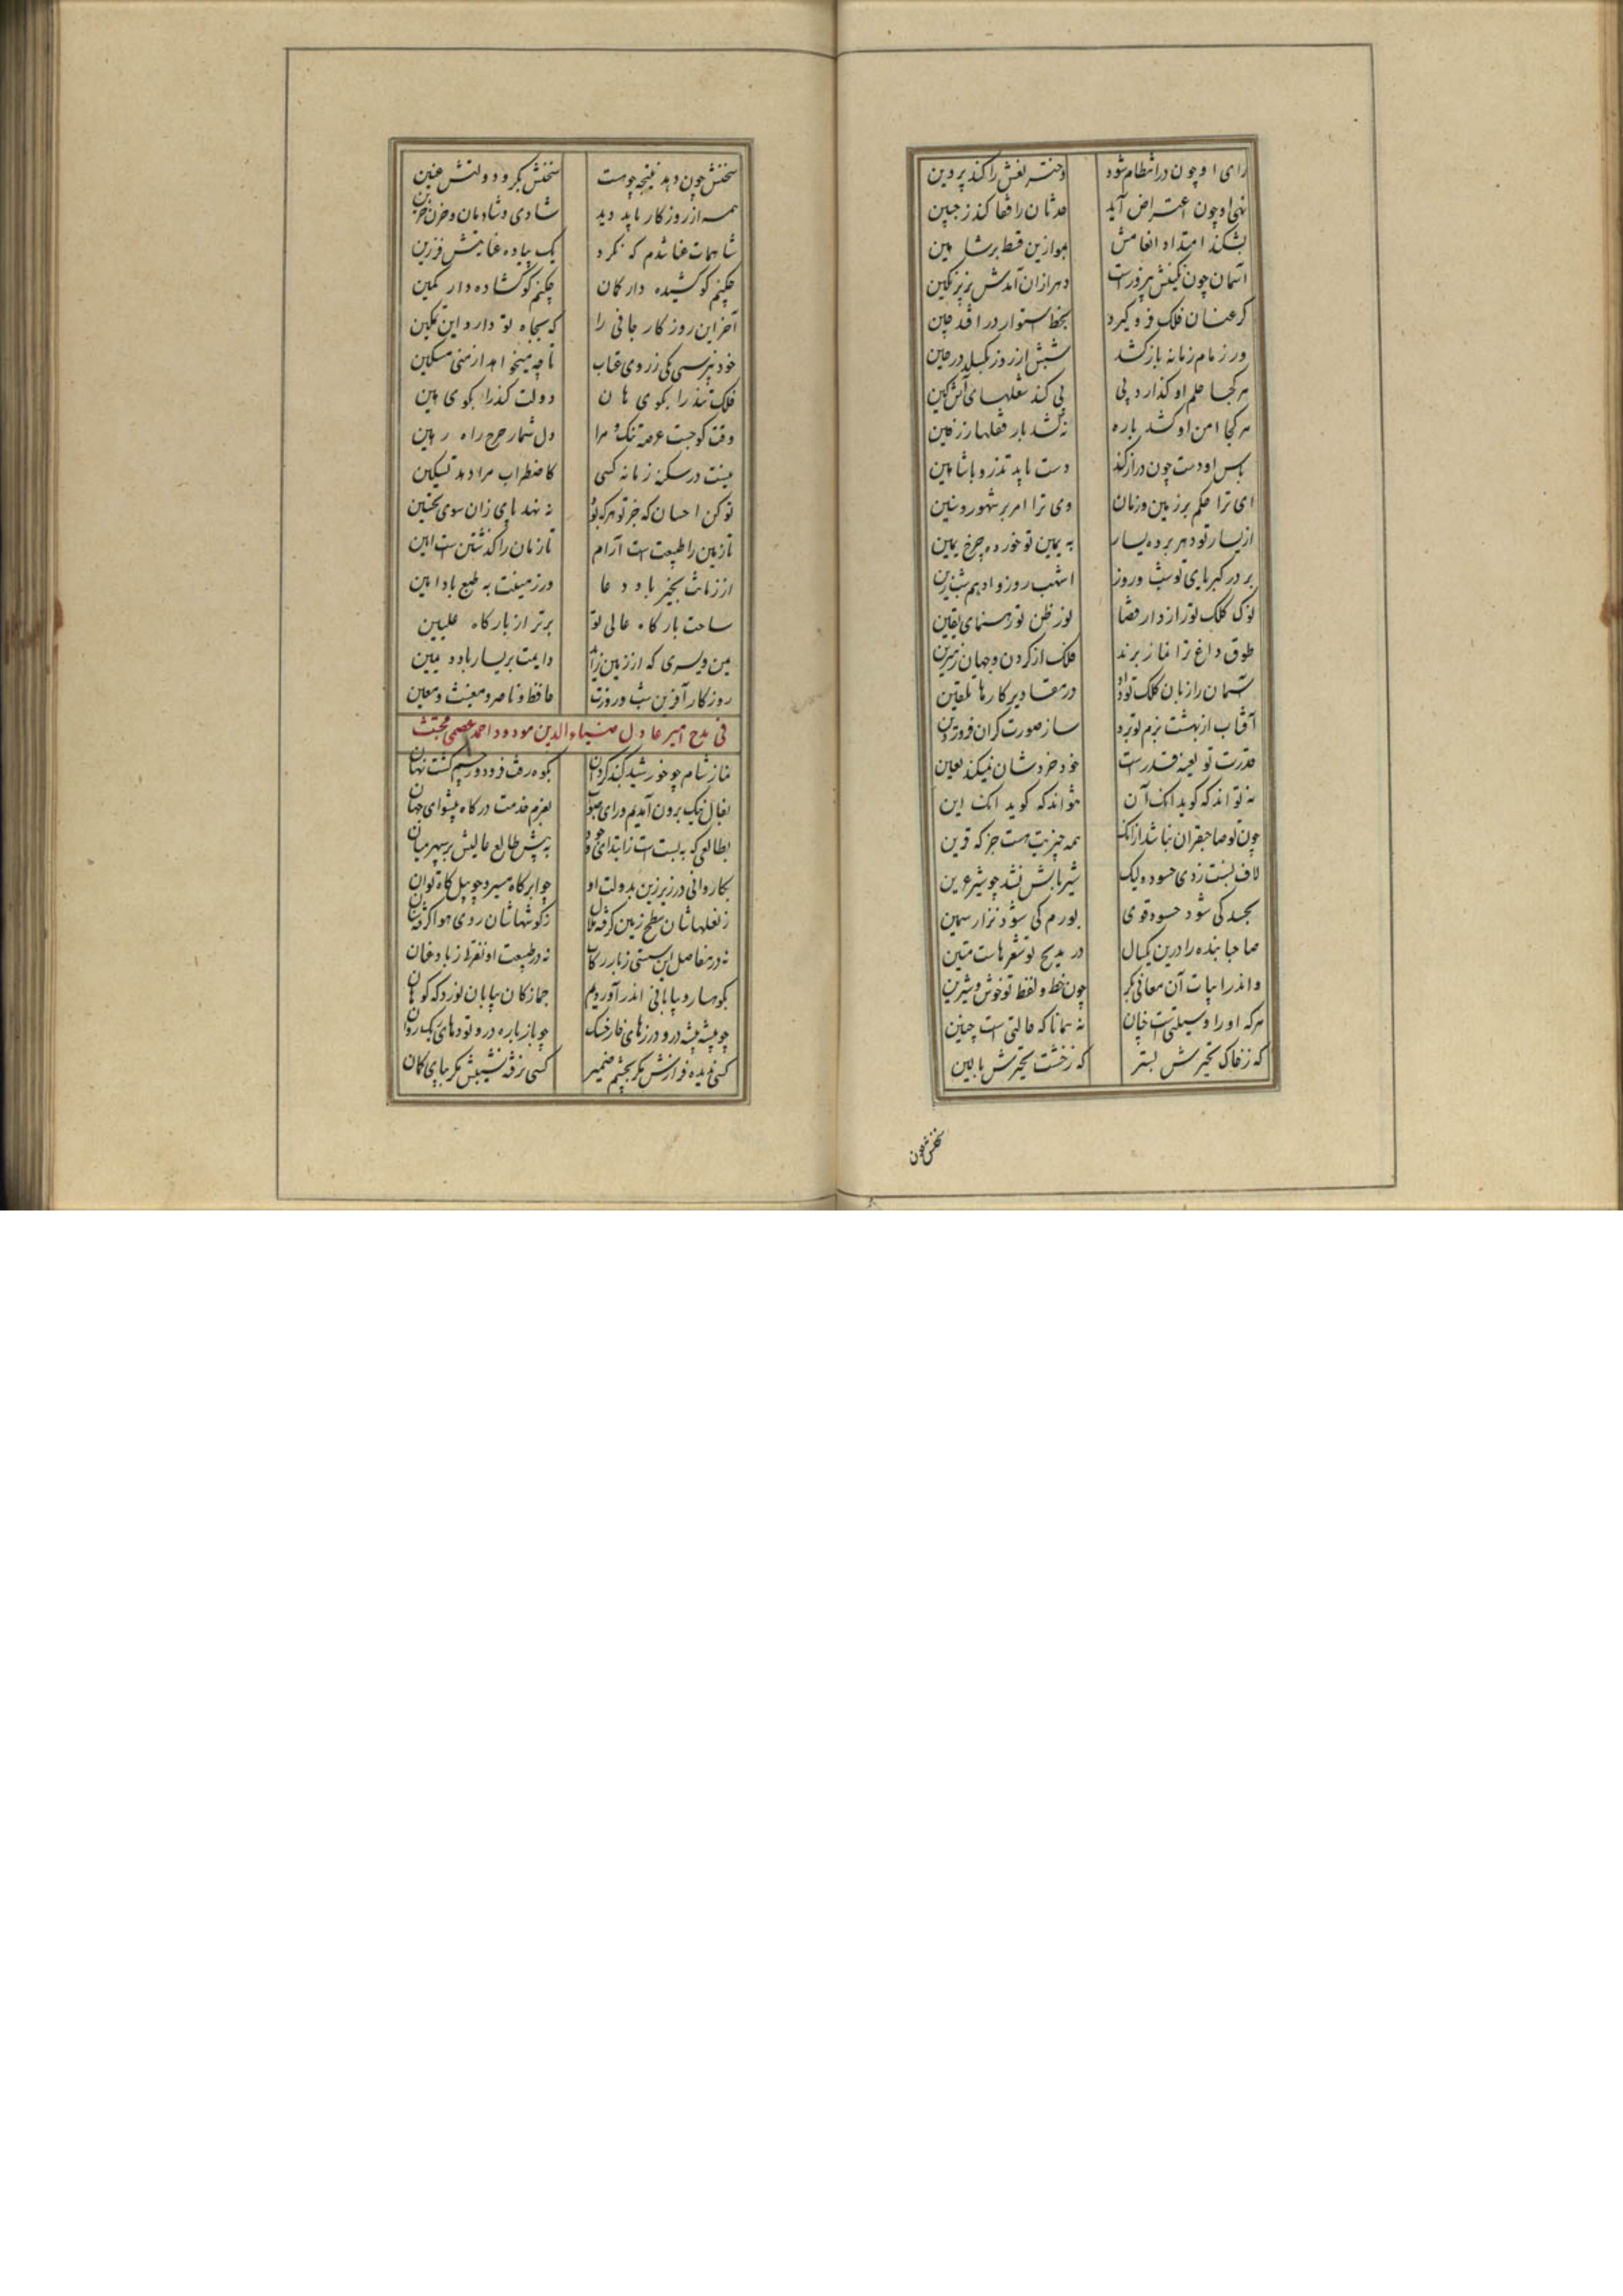 رای او چون در انتظام شود دختر نعش را کند پروین
نهی او چون اعتراض آید حدثان را قفا کند ز جبین
بشکند امتداد انعامش موازین قسط بر شاهین
آسمان چون نگینش پیروزست دهر از آن آمدش بزیر نگین
گر عنان فلک فرو گیرد بخط استوار در افتد چین
ور زمام زمانه باز کشد شبش از روز بگسلد در حین
هر کجا حلم او گذارد پی پی کند شعلهای آتش کین
هر کجا امن او کشد باره نکشد بار قفلها زرفین
باس او دست چون دراز کند دست یابد تذرو با شاهین
ای ترا حکم بر زمین و زمان وی ترا امر بر شهور و سنین
از یسار تو دهر برده یسار به یمین تو خورده چرخ یمین
بر در کبریای تو شب و روز اشهب روز و ادهم شب زین
نوک کلک تو رازدار قضا نور ظن تو رهنمای یقین
طوق داغ ترا نماز برند فلک از گردن و جهان ز سرین
آسمان را زبان کلک تو داد در مقادیر کارها تلقین
آفتاب از بهشت بزم تو برد ساز صورت گران فروردین
قدرت تو بعینه قدرست خود خرد شان نمیکند تعیین
نه تواند که گوید انک آن نتواند که گوید انک این
چون تو صاحبقران نباشد از انک همه چیزیت هست جز که قرین
لاف نسبت زدی حسود ولیک شیر بالش نشد چو شیر عرین
بجسد کی شود حسود قوی بورم کی شود نزار سمین
صاحبا بنده را درین یکسال در مدیح تو شعرهاست متین
واندر ابیات آن معانی بکر چون خط و لفظ تو خوش و شیرین
هر که او را وسیلتی است چنان نه همانا که حالتی است چنین
که ز خاک تحیرش بستر که ز خشت تحیرش بالین
سخنش چون
سخنش چون دهد نتیجه چو هست سخنش بکر و دولتش عنین
همه از روزگار باید دید شادی و شادمان و حزن حزین
شاهمات عنا شدم که نکرد یک پیاده عنایتش فرزین
چکنم گو کشیده دار کمان چکنم گو گشاده دار کمین
آخر این روزگار جافی را که بجاه تو دارد این تمکین
خود نپرسی یکی ز روی عتاب تا چه میخواهد از منی مسکین
فلک تند را بگوی هان دولت کند را بگوی هین
وقت کوچست عرصه تنگ مرا دل شمار حرج راه رهین
نیست در سکنه زمانه کسی کاضطراب مرا دهد تسکین
تو کن احسان که جز تو هر که بود ننهد پای زان سوی تحسین
تا زمین را طبیعت است آرام تا زمان را گذشتن است آیین
از زمانت بخیر باد دعا در زمینت به طبع باد امین
ساحت بارگاه عالی تو برتر از بارگاه علیین
یمن و یسری که از زمین زاید دایمت بر یسار باد و یمین
روزگار آفرین شب و روزت حافظ و ناصر و مغیث و معین
فی مدح امیر عادل ضیاءالدین مودود احمد عصمی مجتث
نماز شام چو خورشید گنبد گردان بکوه رفت فرو دور چشم گشت نهان
بفال نیک برون آمدیم و رای صواب بعزم خدمت درگاه پیشوای جهان
بطالعی که ببسته است ز ابتدای وجود به پیش طالع عالیش بر سپهر میان
بکاروانی در زیر زین بدولت او چو ابر گاه مسیر و چو پیل گاه توان
ز نعلهاشان سطح زمین گرفته هلال ز گوشهاشان روی هوا گرفته سنان
نه در مفاصل این سستی ز بار رکاب نه در طبیعت او نفرت ز باد عنان
بکوهسار و بیابانی اندر آوردیم جمازگان بیابان نورد که کوهان
چو بیشه بیشه درو درزهای خار خسک چو باره باره درو تودهای ریگ روان
کسی ندیده فرازش مگر بچشم ضمیر کسی نرفته نشیبش مگر بپای گمان